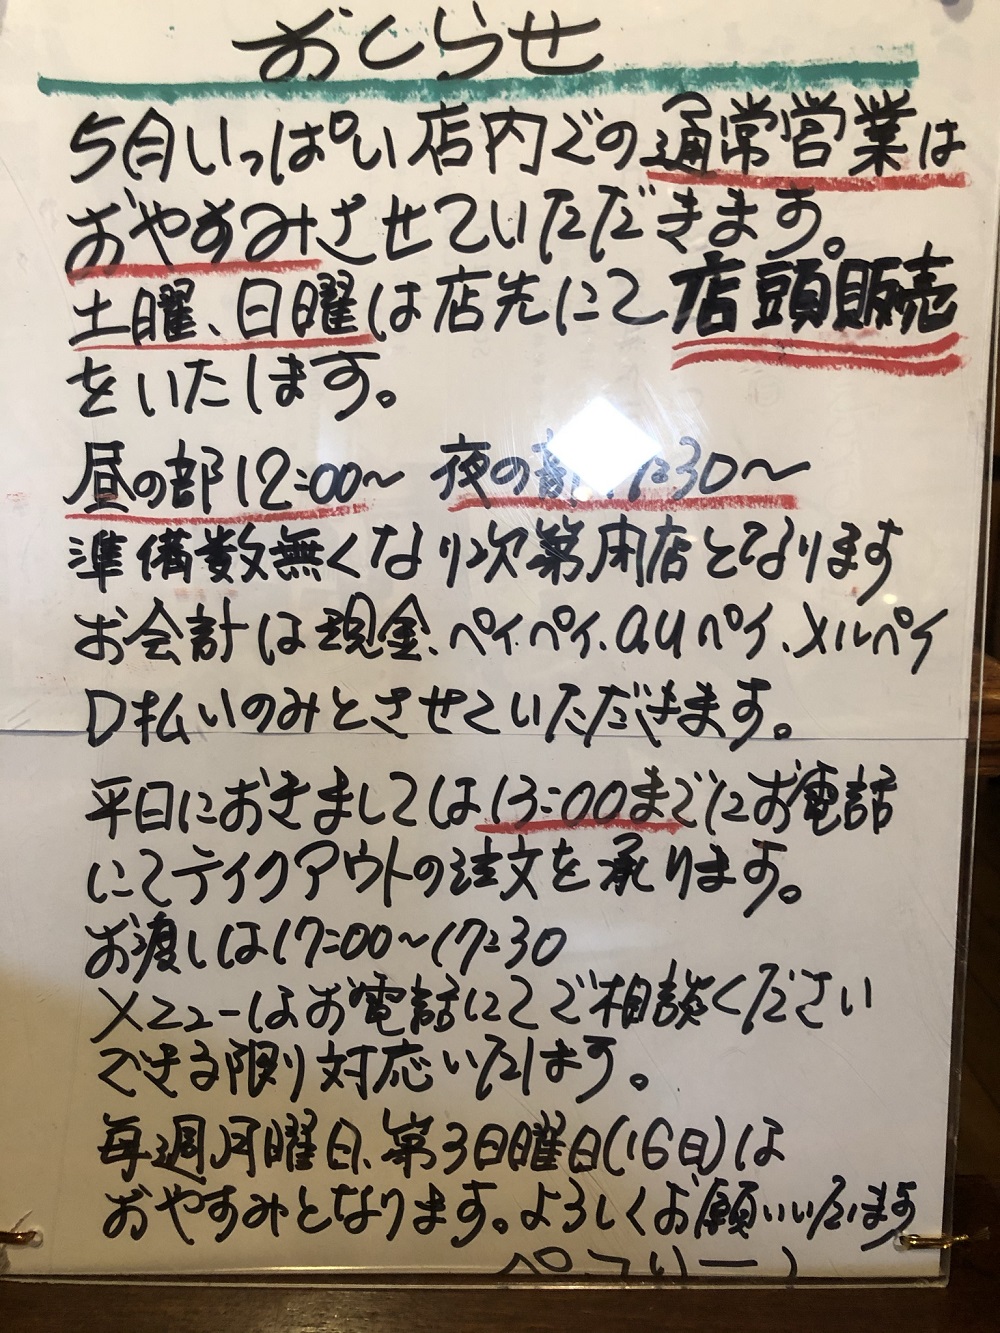 おしらせ
5月いっぱい店内での通常営業は
おやすみさせていただきます。
土曜、日曜は店先にて店頭販売
をいたします。
昼の部12:00〜 夜の部 7:30〜
準備数無くなり次第閉店となります
お会計は現金、ペイペイ、auペイ、メルペイ
D払いのみとさせていただきます。
平日におきましては13:00までにお電話
にてテイクアウトの注文を承ります。
お渡しは17:00〜17:30
メニューはお電話にてご相談ください
できる限り対応いたします。
毎週月曜日、第3日曜日(16日)は
おやすみとなります。よろしくお願いいたします